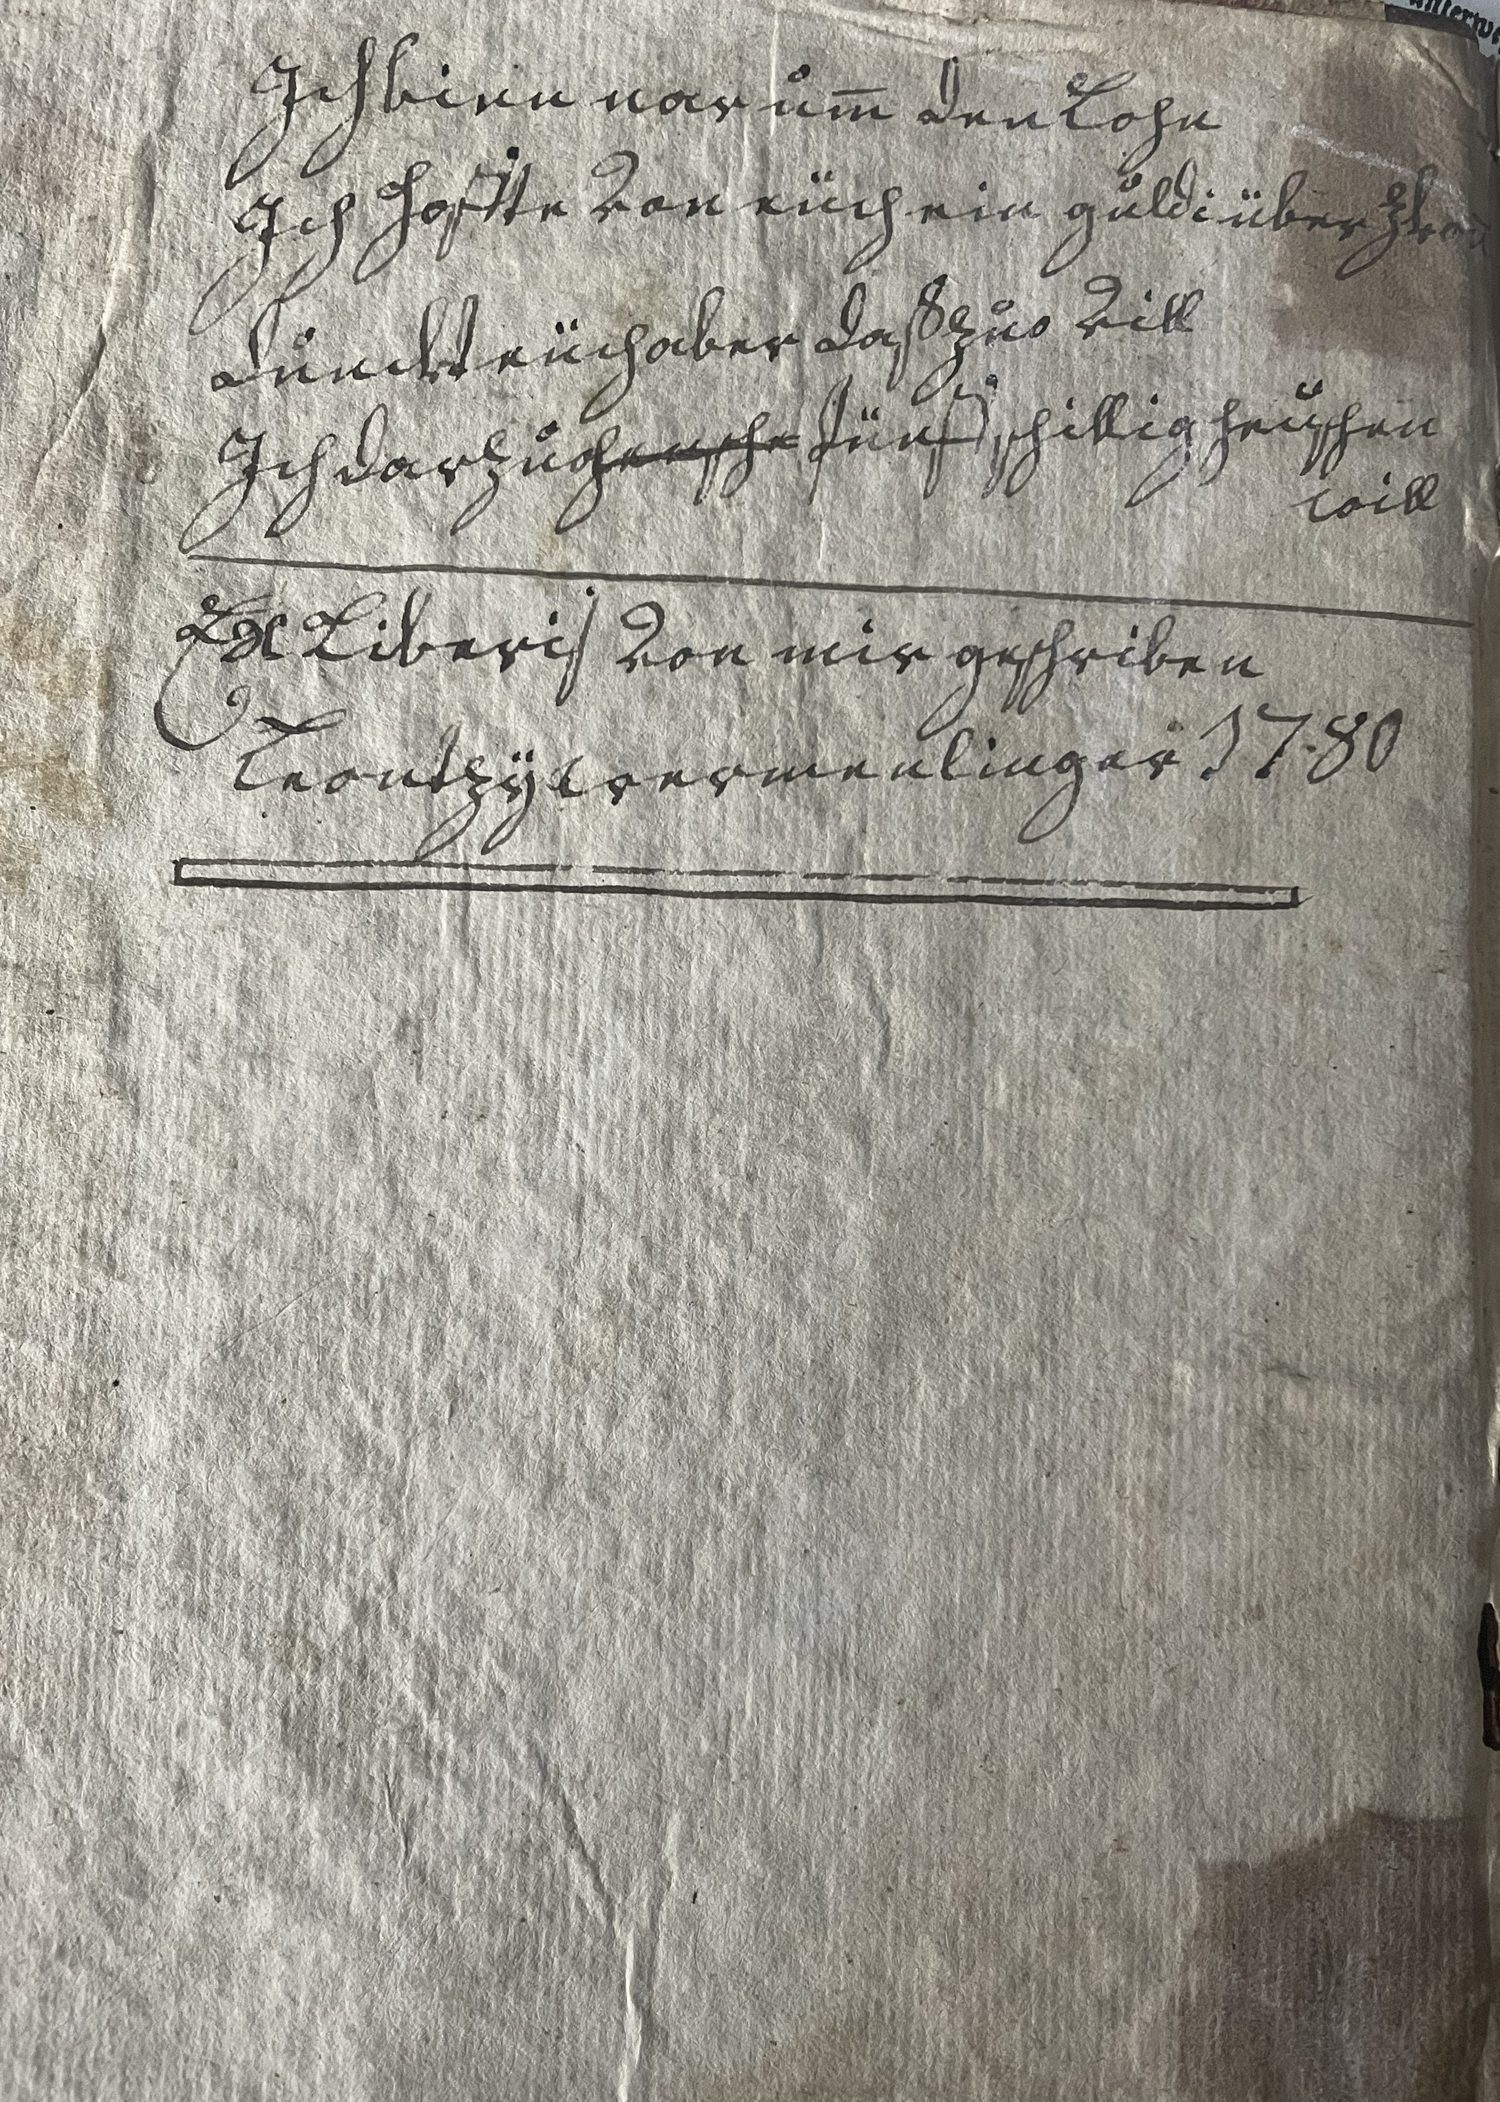 Ich bien nar üm̄ den Lohn
Ich hoffte von eüch ein guldi über
Dünckt eüch aber daß zuo vill
Ich darzu fünf schillig heüschen
will
Ex Liberis von mir geschriben
1780